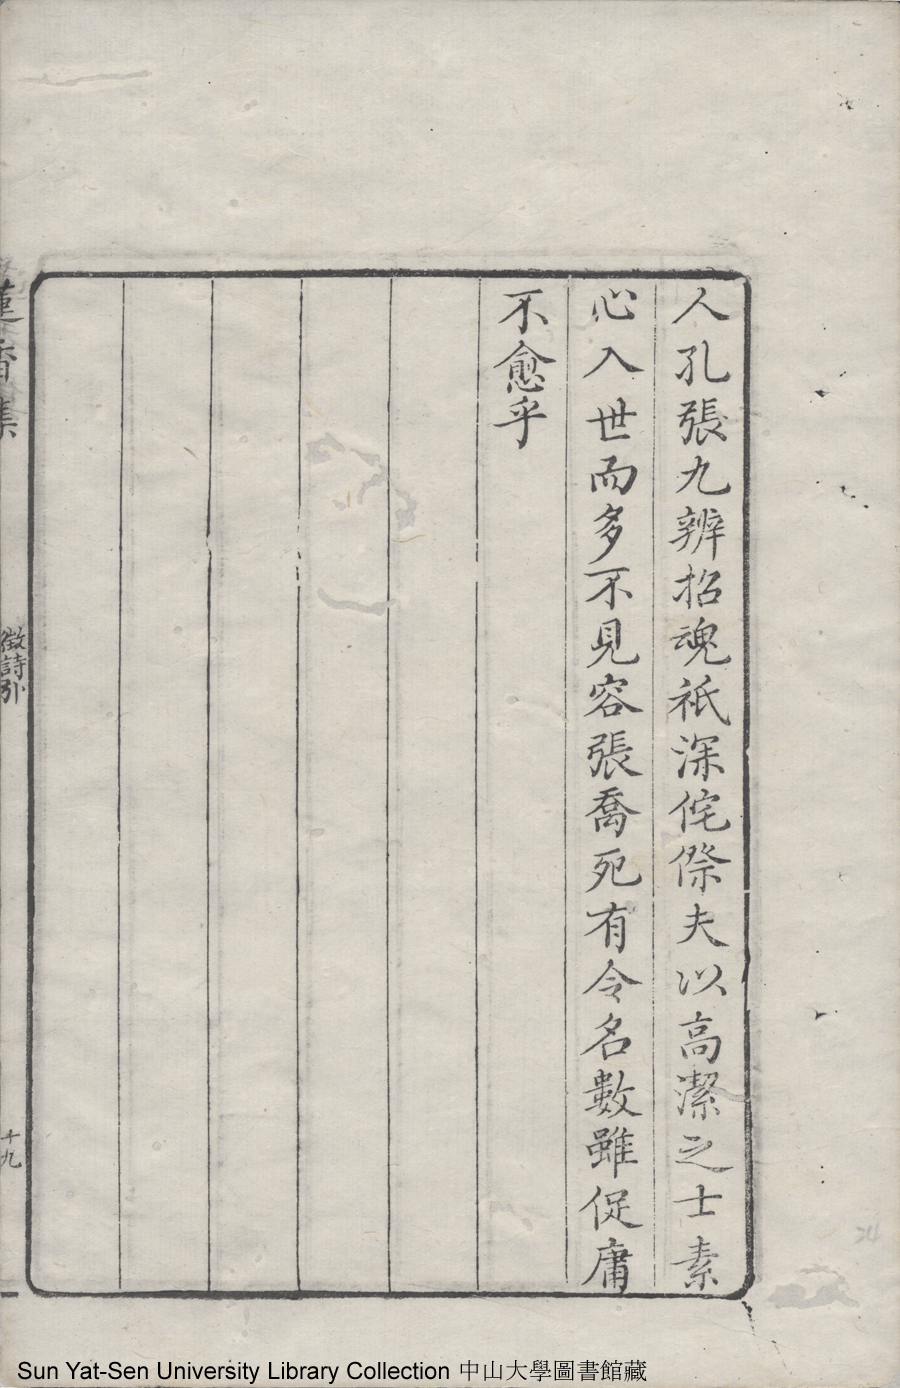 人孔張九辨招魂祇深侘傺夫以高潔之士素
心入世而多不見容張喬死有令名數雖促庸
不愈乎
蓮香集
徵詩引
十九
24
Sun Yat-Sen University Library Collection 中山大學圖書館藏